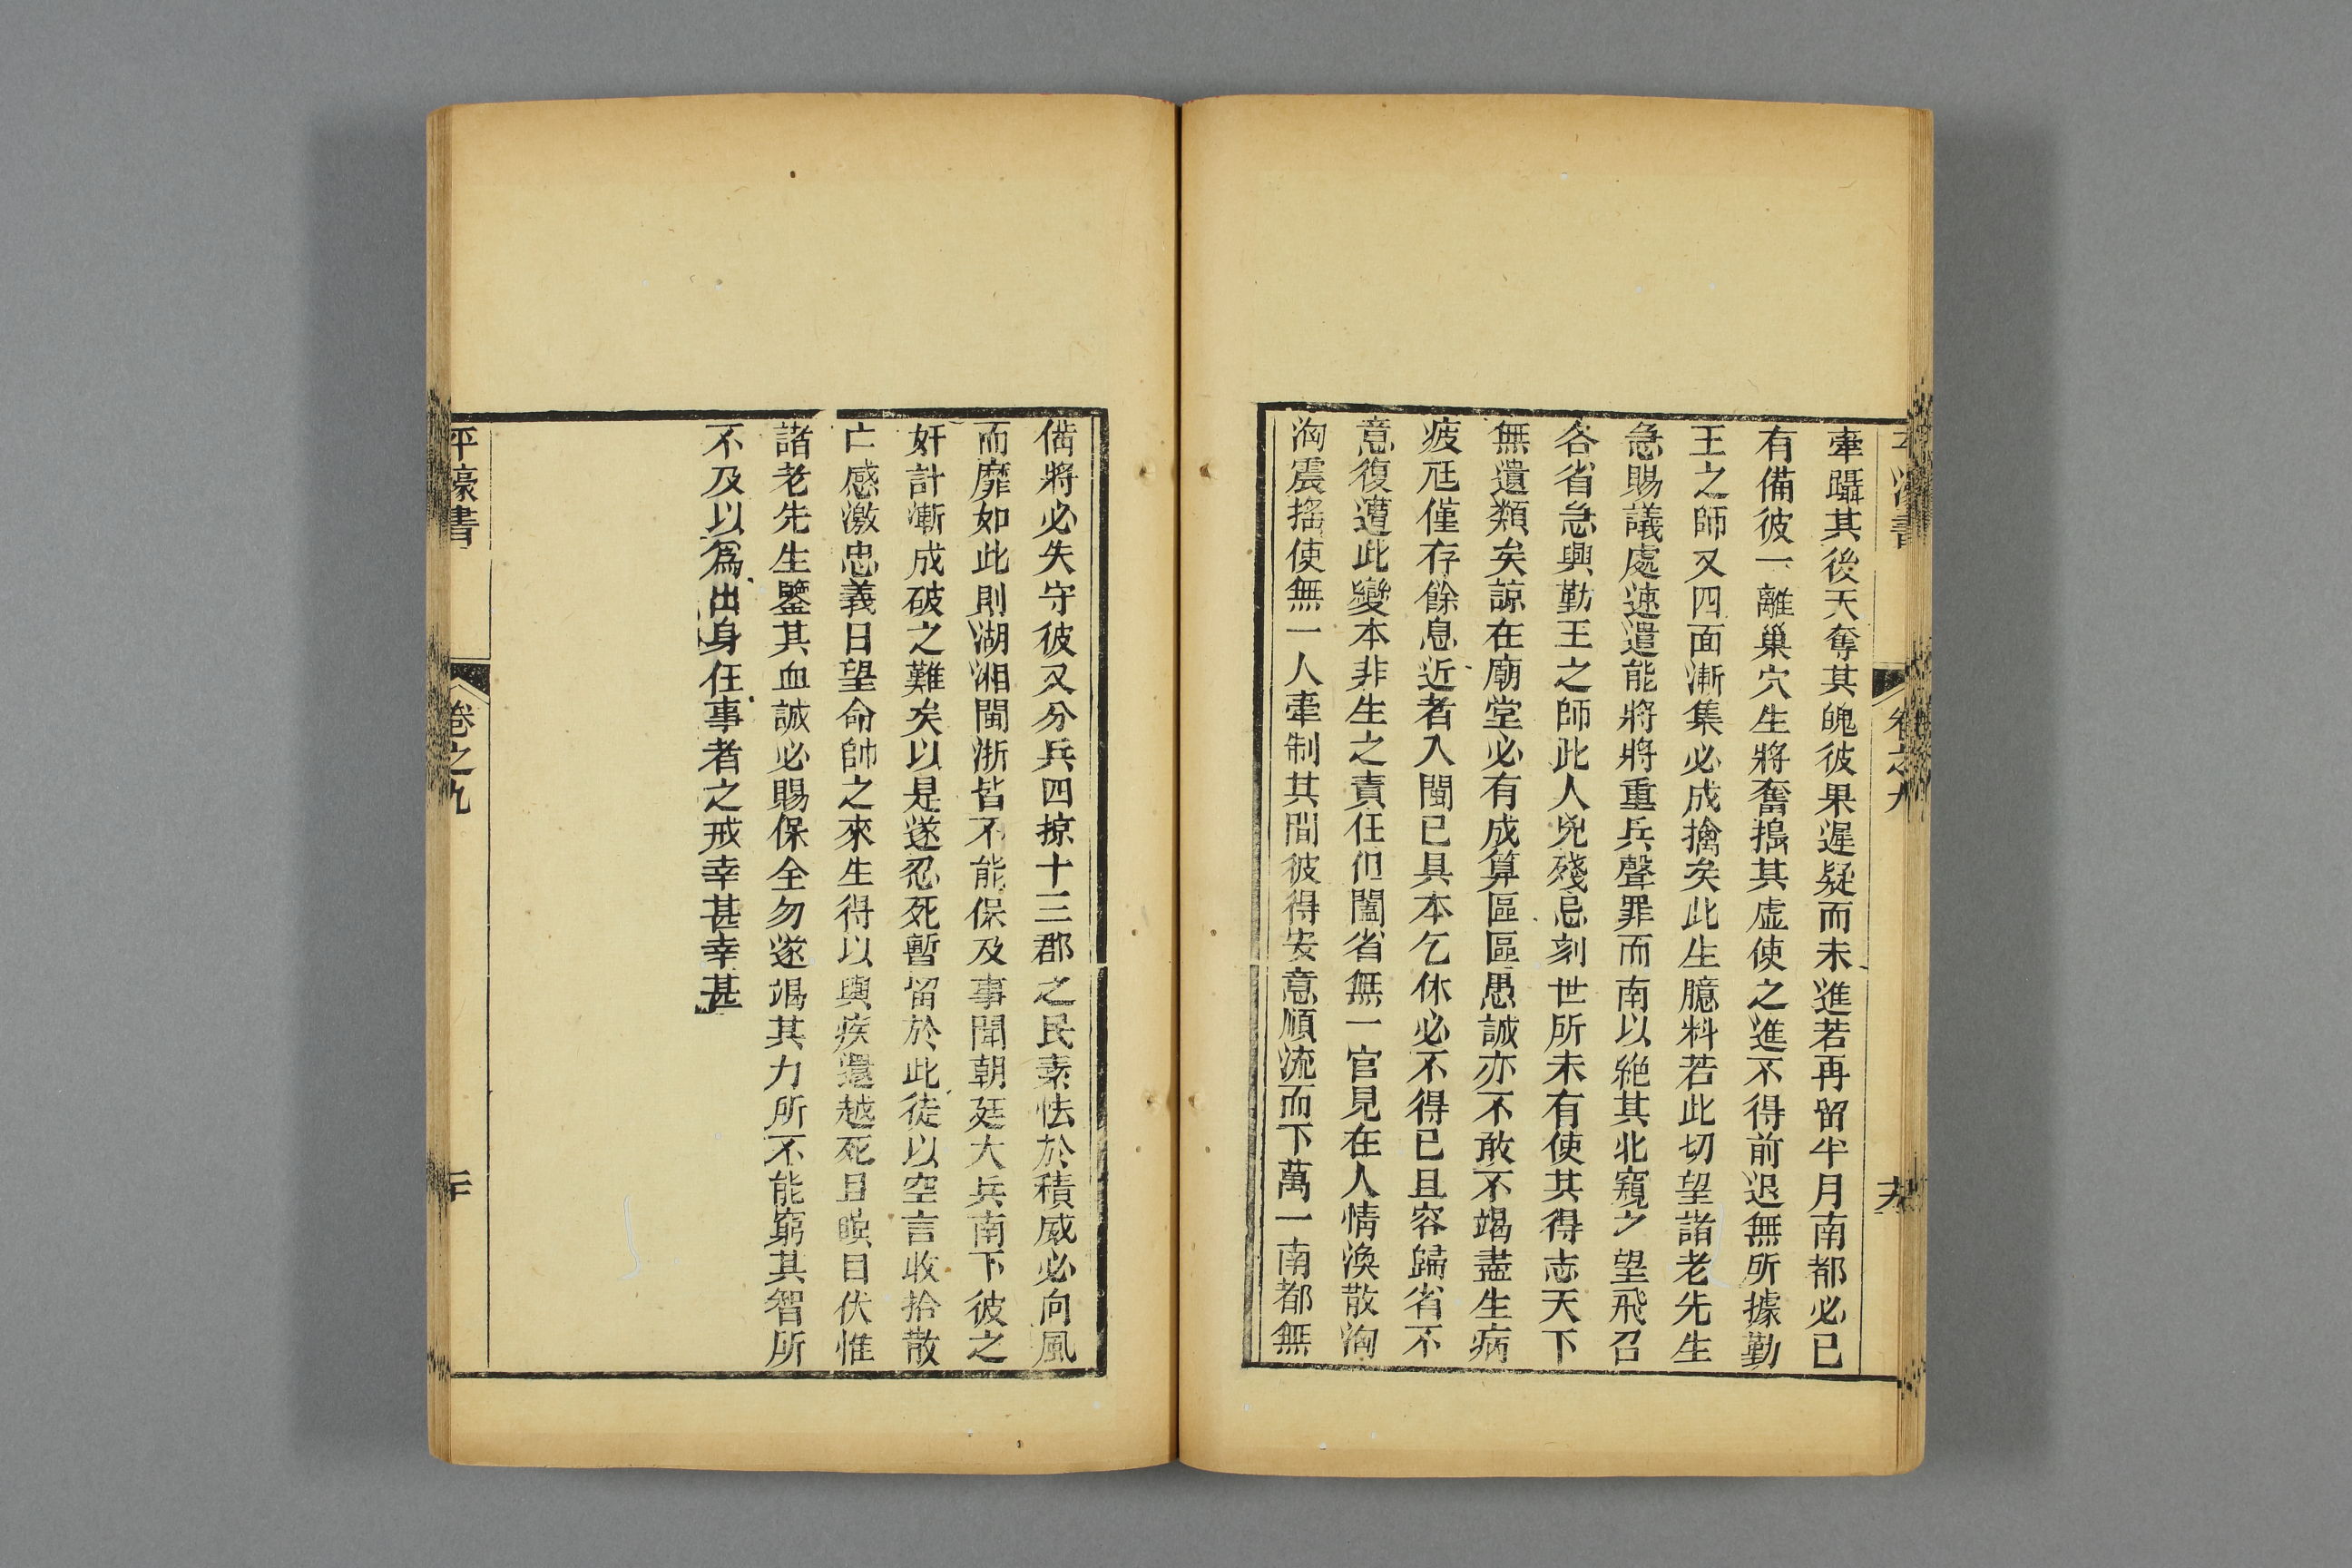 牽躡其後天奪其魄彼果遲疑而未進若再留半月南都必已
有備彼一離巢穴生將奮搗其虛使之進不得前退無所據勤
王之師又四面漸集必成擒矣此生臆料若此切望諸老先生
急賜議處速遣能將將重兵聲罪而南以絕其北窺之望飛召
各省急興勤王之師此人兇殘忌刻世所未有使其得志天下
無遺類矣諒在廟堂必有成算區區愚誠亦不敢不竭盡生病
疲尫僅存餘息近者入閩已具本乞休必不得已且容歸省不
意復遭此變本非生之責任但闔省無一官見在人情渙散洶
洶震搖使無一人牽制其間彼得安意順流而下萬一南都無
偹將必失守彼又分兵四掠十三郡之民素怯於積威必向風
而靡如此則湖湘閩浙皆不能保及事聞朝廷大兵南下彼之
奸計漸成破之難矣以是遂忍死暫留於此徒以空言收拾散
亡感激忠義日望命帥之來生得以輿疾還越死且瞑目伏惟
諸老先生鑒其血誠必賜保全勿遂竭其力所不能窮其智所
不及以爲出身任事者之戒幸甚幸甚
平濠書
卷之九